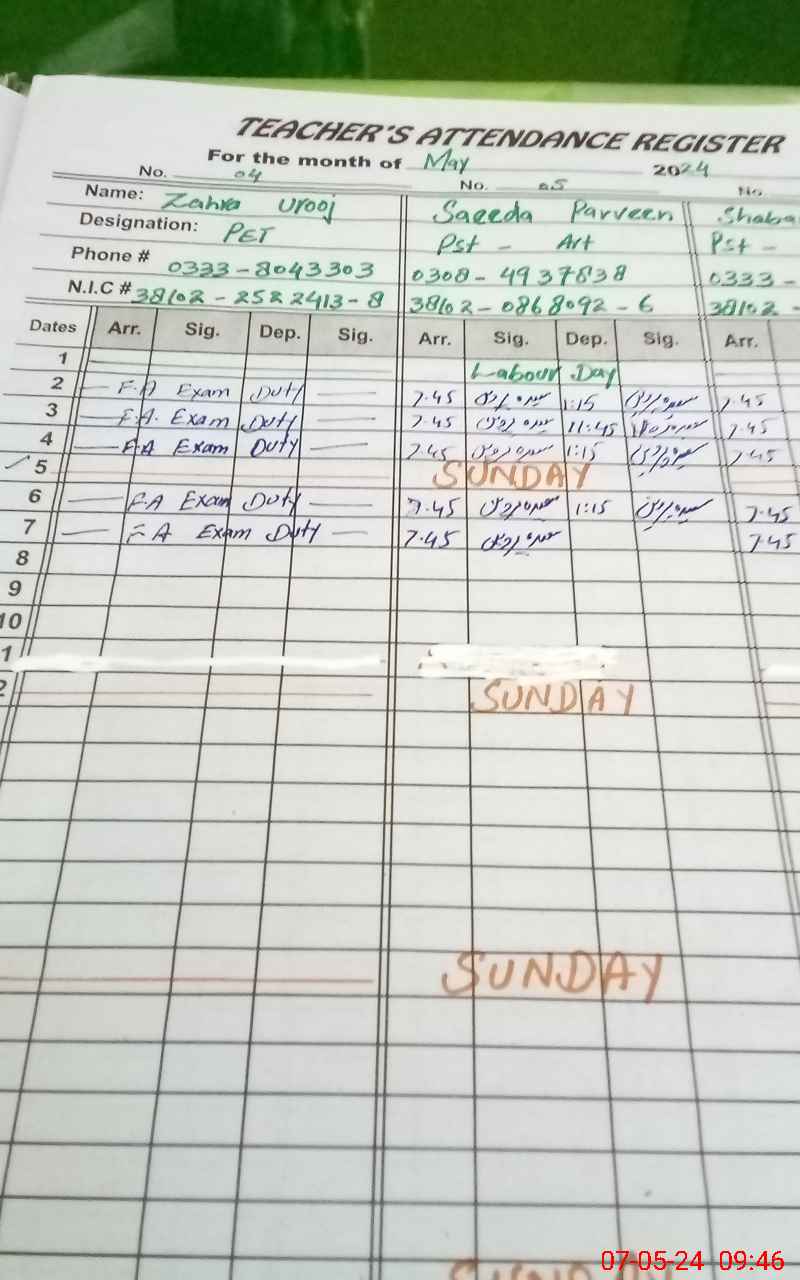 TEACHER'S ATTENDANCE REGISTER
For the month of May 2024
No. 04 No. 05 No.
Name: Zahra Urooj Saeeda Parveen
Designation: PET Pst - Art Pst -
Phone # 0333-8043303 0308-4937838 0333-
N.I.C # 38102-2522413-8 38102-0868092-6 38102
Dates Arr. Sig. Dep. Sig. Arr. Sig. Dep. Sig. Arr.
1 Labour Day
2 F.A Exam Duty 7.45 1:15 7.45
3 F.A. Exam Duty 7.45 11:45 7.45
4 F.A Exam Duty 7.45 1:15 7.45
5 SUNDAY
6 F.A Exam Duty 7.45 1:15 7.45
7 F A Exam Duty 7.45 7.45
8
9
10
1
2 SUNDAY
SUNDAY
07-05-24 09:46